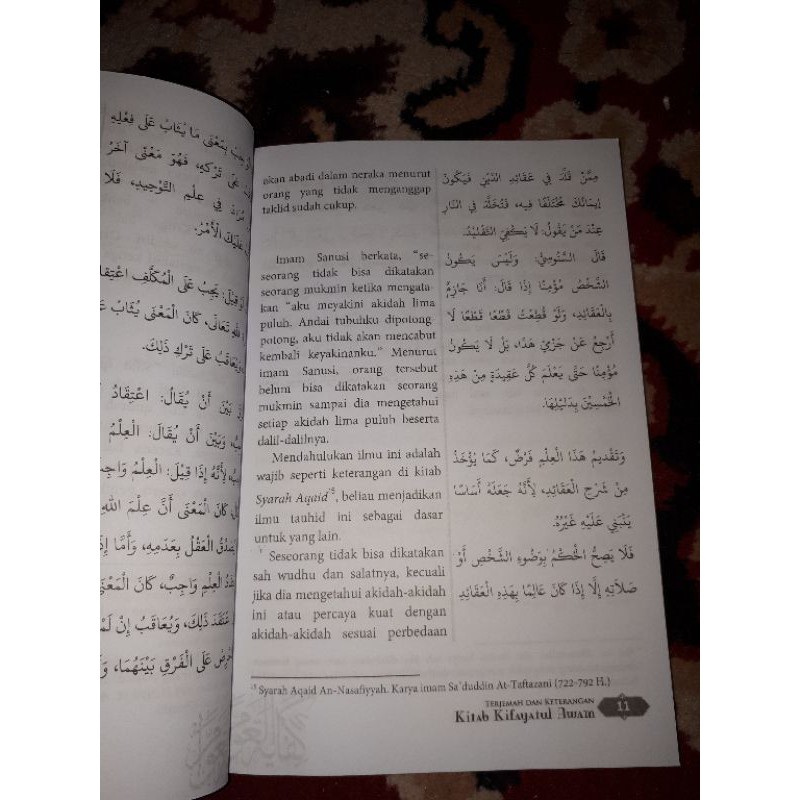 akan abadi dalam neraka menurut
orang yang tidak menganggap
taklid sudah cukup.
Imam Sanusi berkata, "se-
seorang tidak bisa dikatakan
seorang mukmin ketika mengata-
kan "aku meyakini akidah lima
puluh. Andai tubuhku dipotong-
potong, aku tidak akan mencabut
kembali keyakinanku." Menurut
imam Sanusi, orang tersebut
belum bisa dikatakan seorang
mukmin sampai dia mengetahui
setiap akidah lima puluh beserta
dalil-dalilnya.
Mendahulukan ilmu ini adalah
wajib seperti keterangan di kitab
Syarah Aqaid¹⁵, beliau menjadikan
ilmu tauhid ini sebagai dasar
untuk yang lain.
Seseorang tidak bisa dikatakan
sah wudhu dan salatnya, kecuali
jika dia mengetahui akidah-akidah
ini atau percaya kuat dengan
akidah-akidah sesuai perbedaan
مِمَّنْ قَلَّدَ فِي عَقَائِدِ الدِّيْنِ فَيَكُوْنُ
إِيمَانُكَ مُخْتَلَفًا فِيهِ، فَتُخَلَّدَ فِي النَّارِ
عِنْدَ مَنْ يَقُولُ: لَا يَكْفِي التَّقْلِيْدُ.
قَالَ السَّنُوْسِيُّ: وَلَيْسَ يَكُوْنُ
الشَّخْصُ مُؤْمِنًا إِذَا قَالَ: أَنَا جَازِمٌ
بِالْعَقَائِدِ، وَلَوْ قُطِعْتُ قِطَعًا قِطَعًا لَا
أَرْجِعُ عَنْ جَزْمِيْ هَذَا، بَلْ لَا يَكُوْنُ
مُؤْمِنًا حَتَّى يَعْلَمَ كُلَّ عَقِيْدَةٍ مِنْ هَذِهِ
الْخَمْسِيْنَ بِدَلِيْلِهَا.
وَتَقْدِيمُ هَذَا الْعِلْمِ فَرْضٌ، كَمَا يُؤْخَذُ
مِنْ شَرْحِ الْعَقَائِدِ، لِأَنَّهُ جَعَلَهُ أَسَاسًا
يَنْبَنِي عَلَيْهِ غَيْرُهُ.
فَلَا يَصِحُّ الْحُكْمُ بِوُضُوْءِ الشَّخْصِ أَوْ
صَلَاتِهِ إِلَّا إِذَا كَانَ عَالِمًا بِهَذِهِ الْعَقَائِدِ
¹⁵ Syarah Aqaid An-Nasafiyyah. Karya imam Sa`duddin At-Taftazani (722-792 H.)
TERJEMAH DAN KETERANGAN
Kitab Kifayatul Awam
11
بِمَعْنَى مَا يُثَابُ عَلَى فِعْلِهِ
عَلَى تَرْكِهِ، فَهُوَ مَعْنًى آخَرُ
فِي عِلْمِ التَّوْحِيدِ، فَلَا
عَلَيْكَ الْأَمْرُ.
قِيْلَ: يَجِبُ عَلَى الْمُكَلَّفِ
تَعَالَى، كَانَ الْمَعْنَى يُثَابُ
وَيُعَاقَبُ عَلَى تَرْكِ ذَلِكَ.
بَيْنَ أَنْ يُقَالَ: اعْتِقَادُ
وَبَيْنَ أَنْ يُقَالَ: الْعِلْمُ
لِأَنَّهُ إِذَا قِيْلَ: الْعِلْمُ
كَانَ الْمَعْنَى أَنَّ عِلْمَ اللهِ
الْعَقْلُ بِعَدَمِهِ، وَأَمَّا
الْعِلْمِ وَاجِبٌ، كَانَ
ذَلِكَ، وَيُعَاقَبُ إِنْ لَمْ
عَلَى الْفَرْقِ بَيْنَهُمَا،